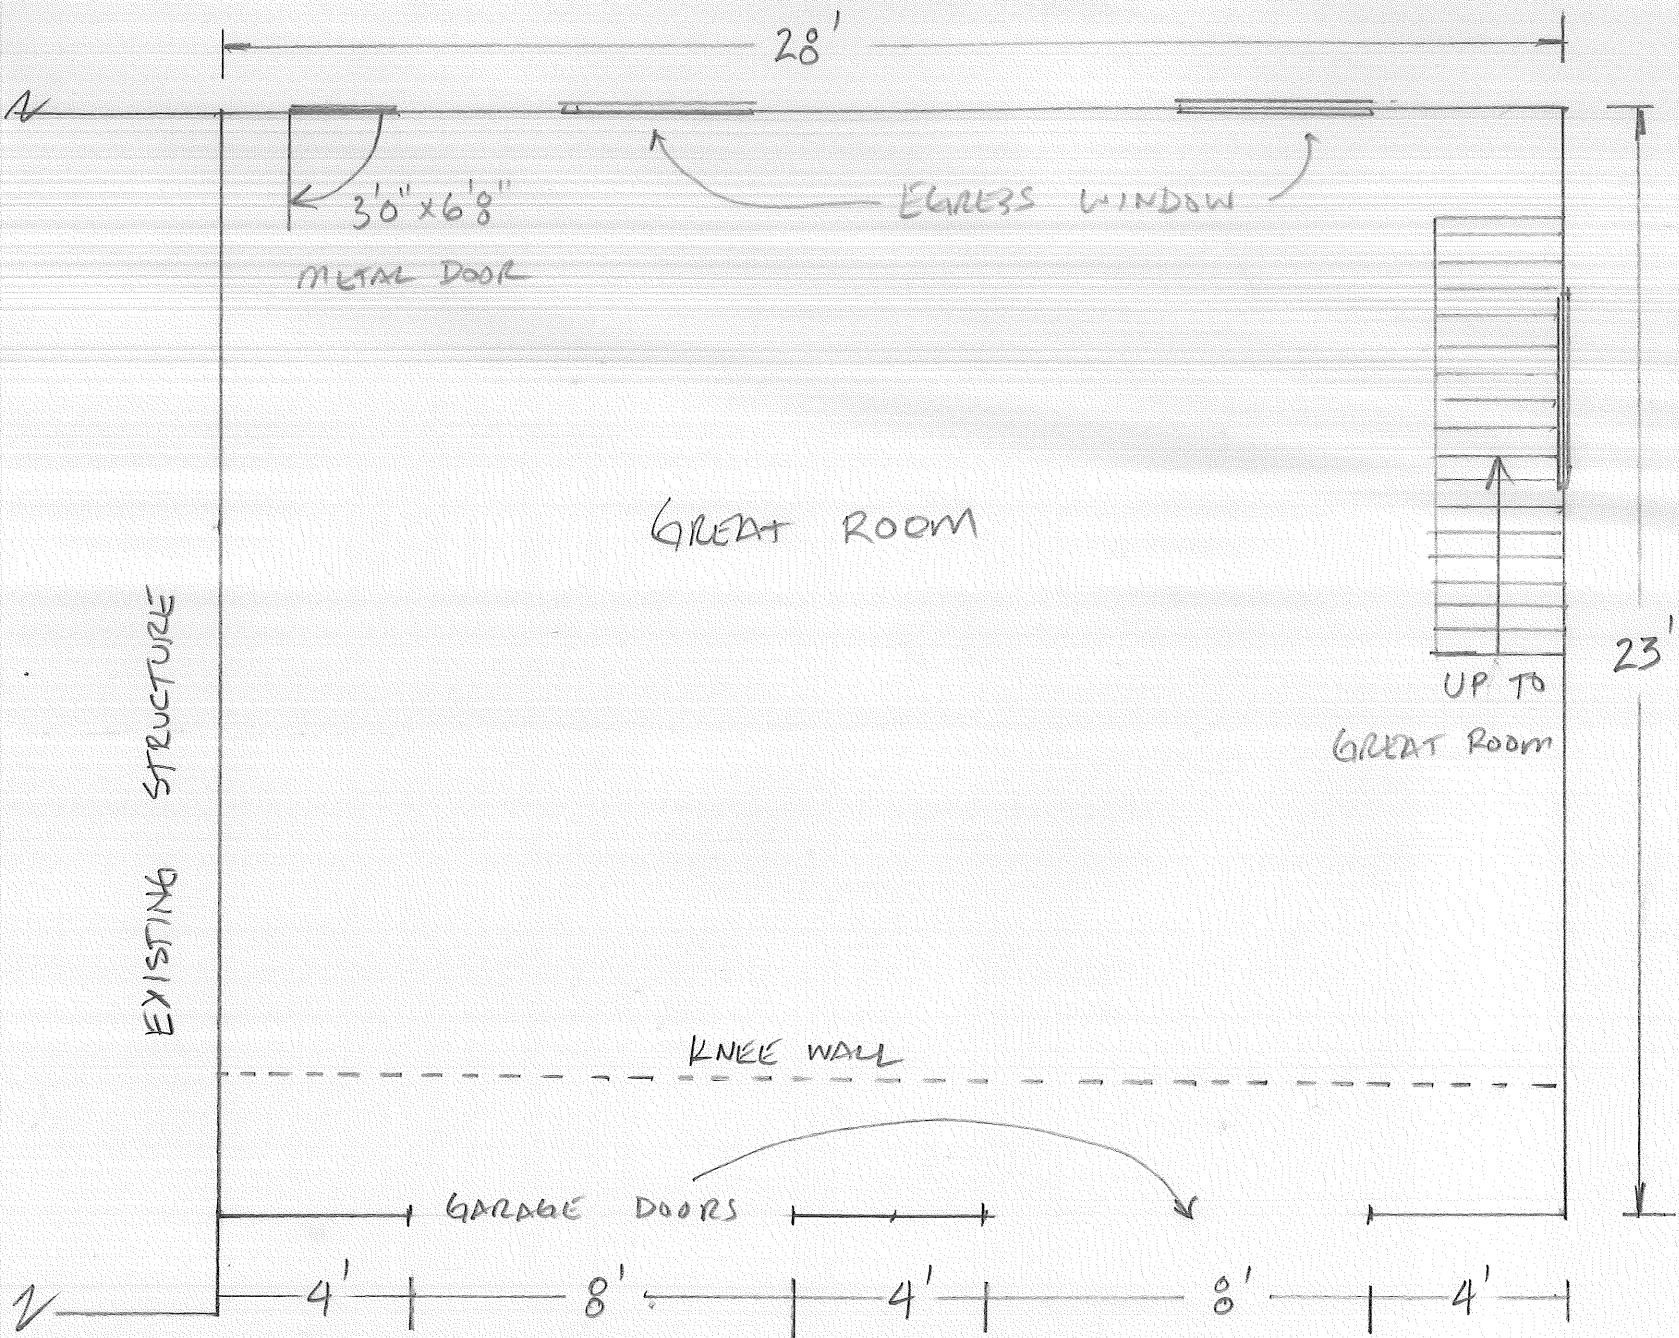 28'
3'0" x 6'8"
METAL DOOR
EGRESS WINDOW
GREAT ROOM
23'
UP TO
GREAT ROOM
EXISTING STRUCTURE
KNEE WALL
GARAGE DOORS
4' 8' 4' 8' 4'